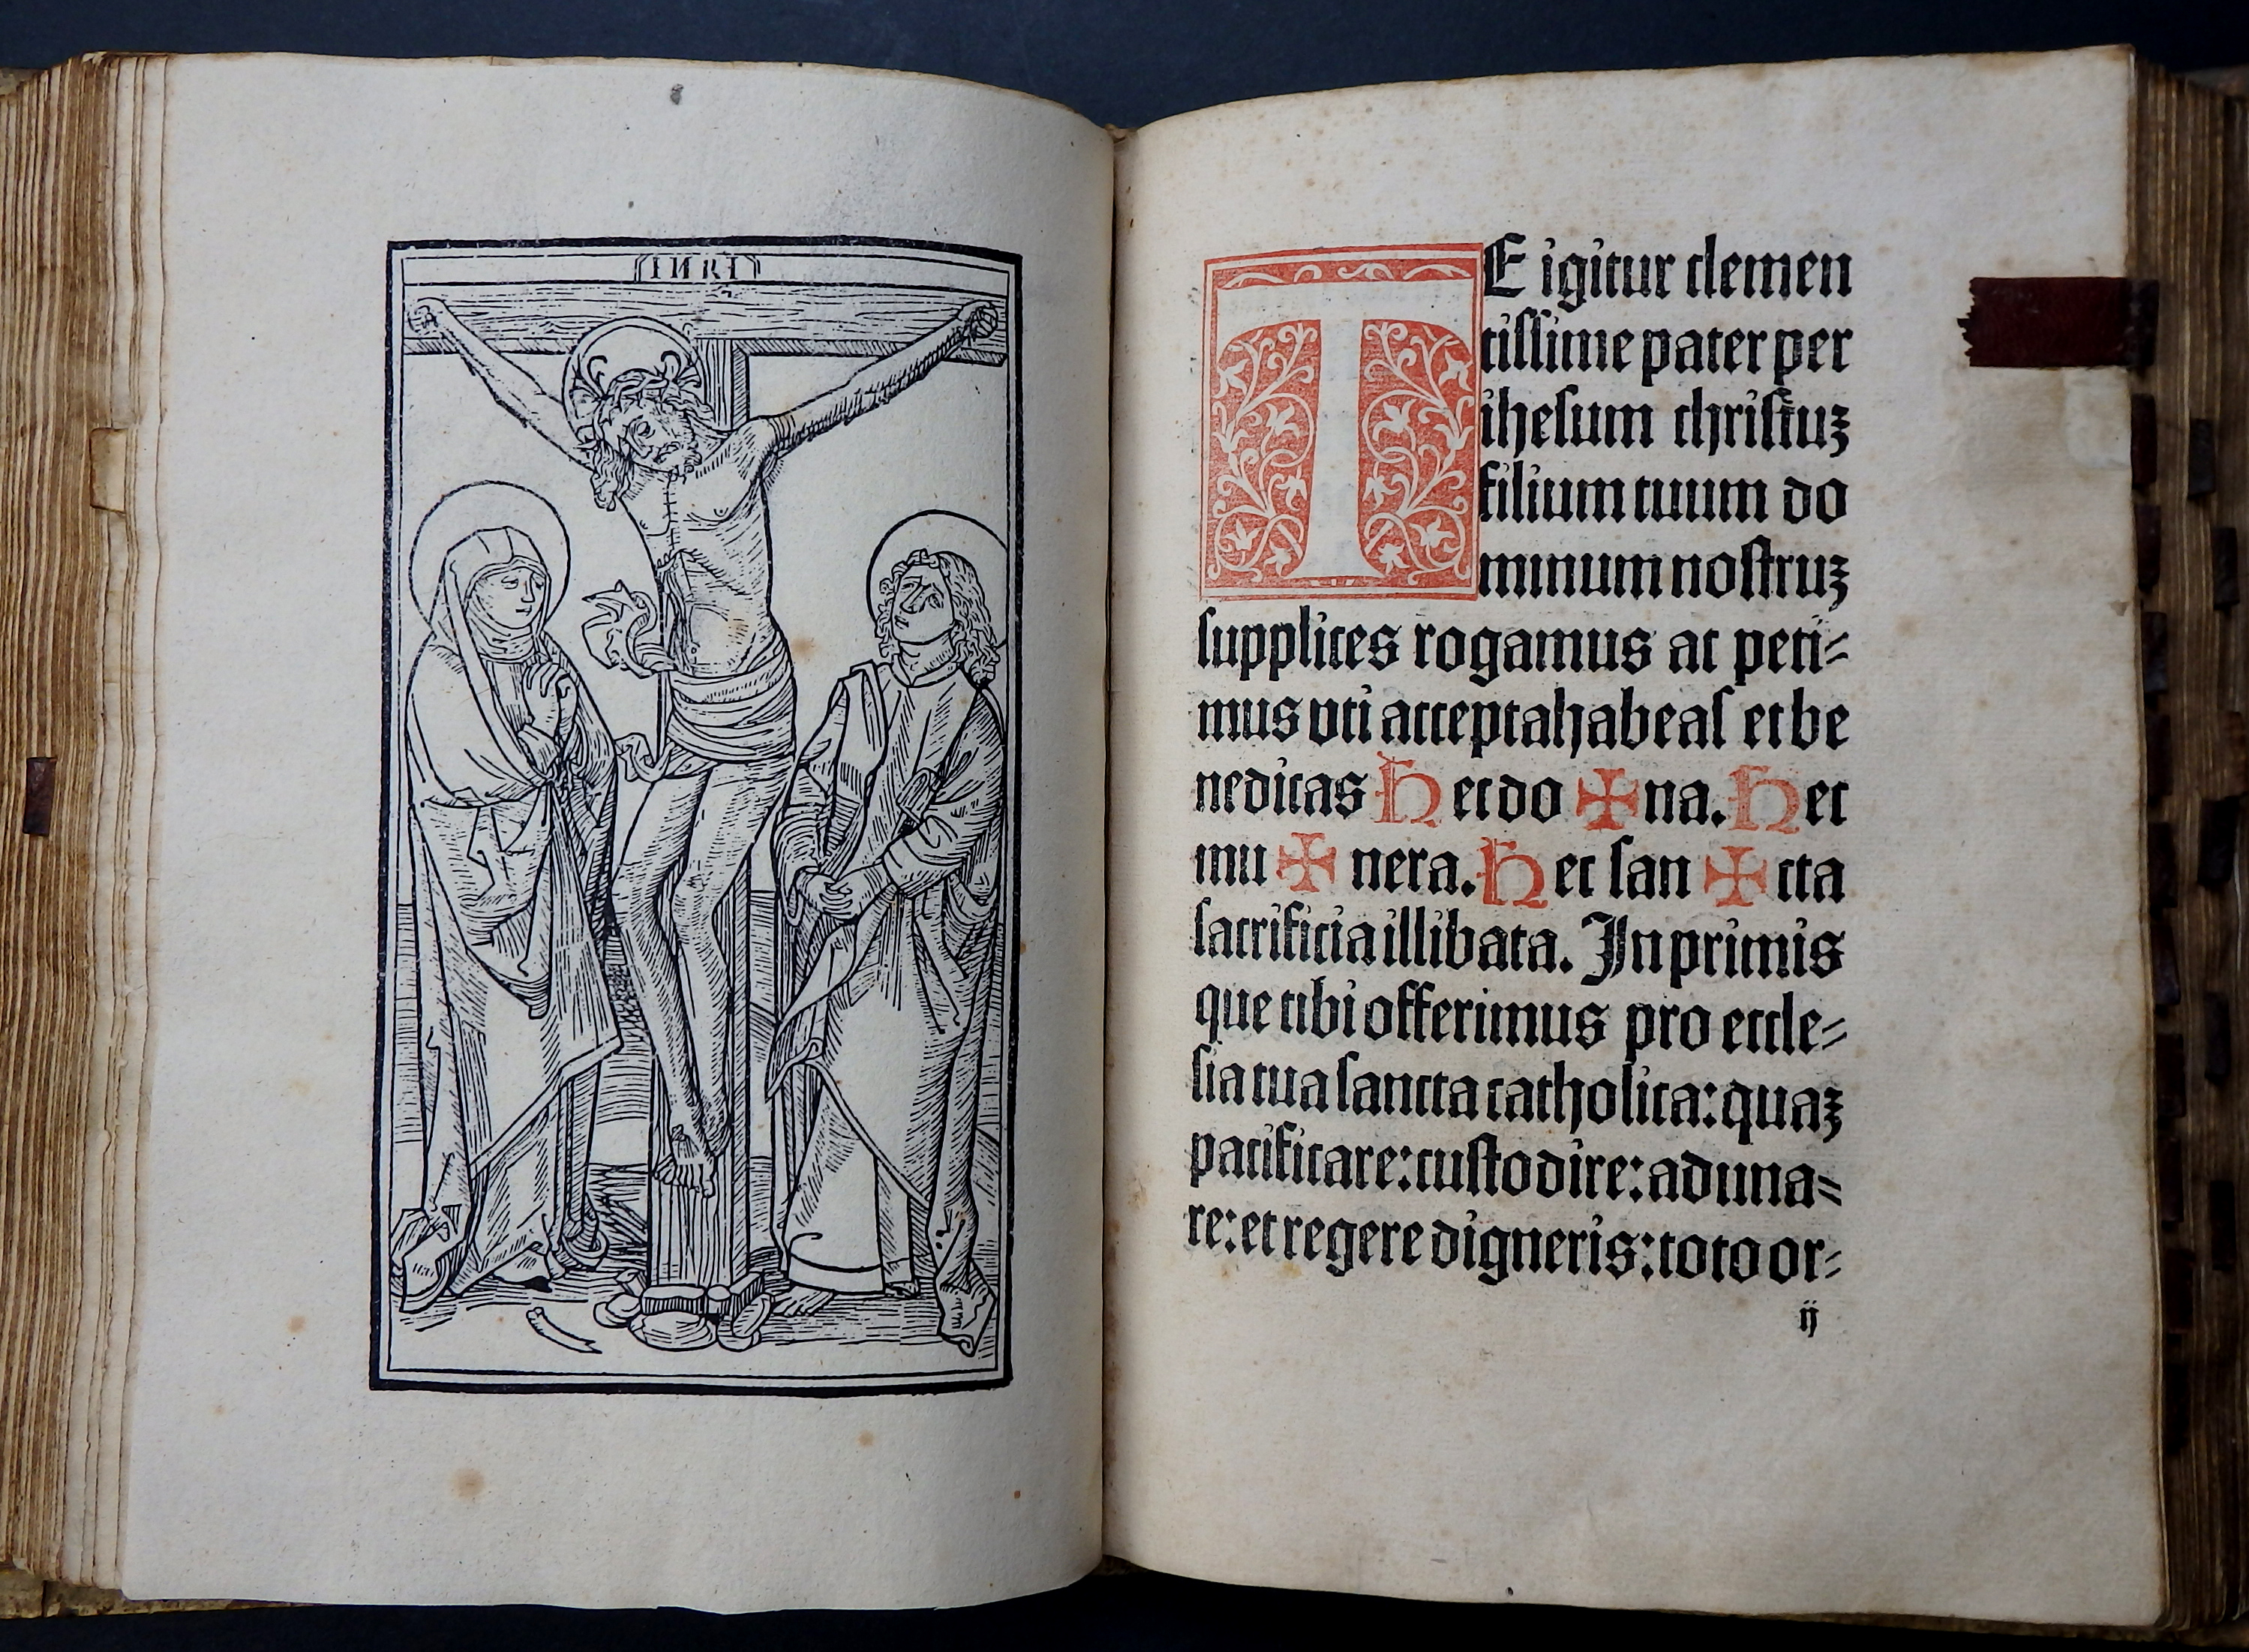 INRI
TE igitur clemen
tissime pater per
ihesum christuꝫ
filium tuum do
minum nostruꝫ
supplices rogamus ac peti⸗
mus vti accepta habeas et be
nedicas Hec do ✠ na. Hec
mu ✠ nera. Hec san ✠ cta
sacrificia illibata. In primis
que tibi offerimus pro eccle⸗
sia tua sancta catholica: quaꝫ
pacificare: custodire: aduna⸗
re: et regere digneris: toto or⸗
ij